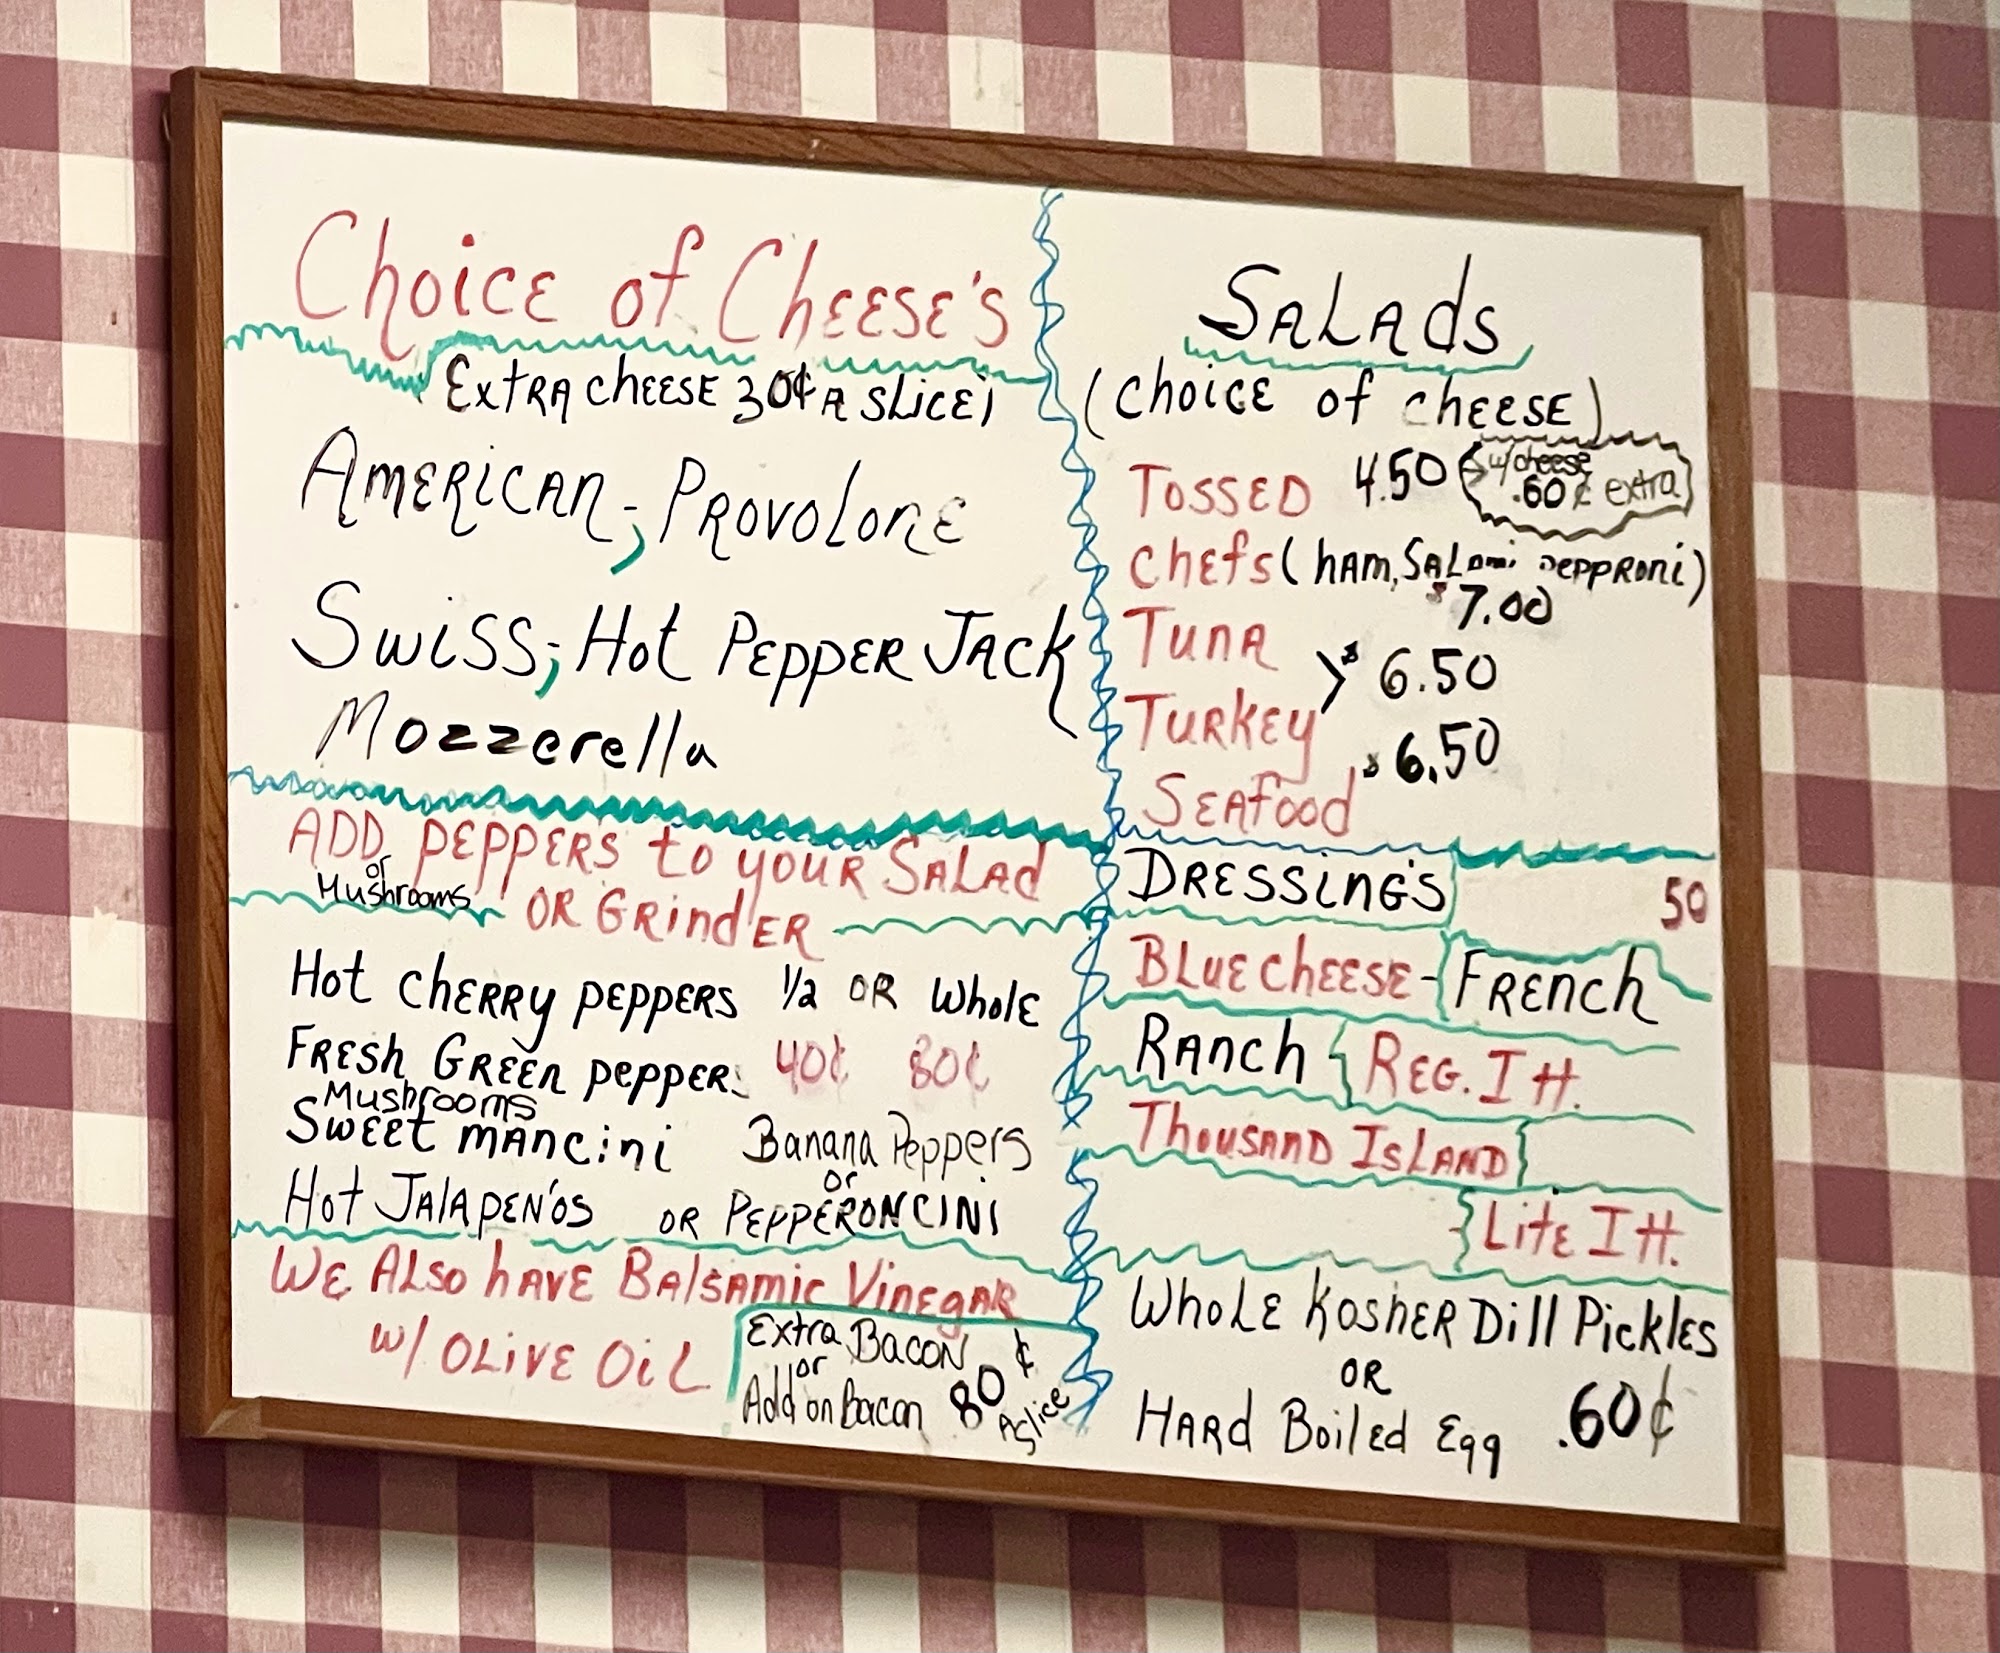 Choice of Cheese's
Extra cheese 30¢ a slice
American; Provolone
Swiss; Hot Pepper Jack
Mozzerella
ADD peppers to your Salad
or
Mushrooms
or Grinder
Hot cherry peppers 1/2 or whole
Fresh Green pepper 40¢ 80¢
Mushrooms
Sweet mancini Banana Peppers
or
Hot Jalapen'os or Pepperoncini
We Also have Balsamic Vinegar
w/ Olive Oil
Extra Bacon
or
Add on Bacon 80¢
A slice
Salads
(choice of cheese)
Tossed 4.50 w/cheese
.60¢ extra
Chefs (ham, Salami pepproni)
$7.00
Tuna
$6.50
Turkey
$6.50
Seafood
Dressing's 50
Blue cheese - French
Ranch Reg. It.
Thousand Island
Lite It.
Whole Kosher Dill Pickles
or
Hard Boiled Egg .60¢